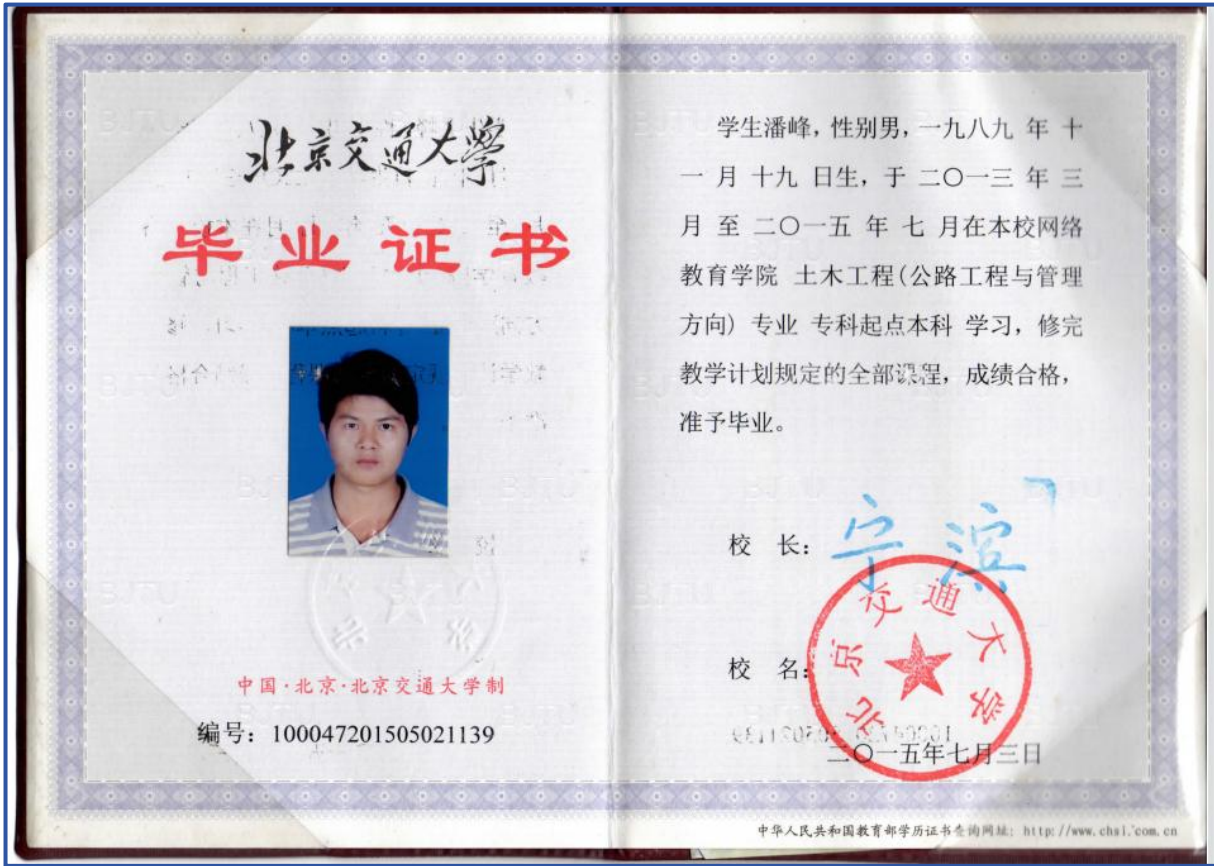 北京交通大學
毕业证书
中国·北京·北京交通大学制
编号：100047201505021139
学生潘峰，性别男，一九八九 年 十
一 月 十九 日生，于 二〇一三 年 三
月 至 二〇一五 年 七 月在本校网络
教育学院 土木工程(公路工程与管理
方向) 专业 专科起点本科 学习，修完
教学计划规定的全部课程，成绩合格，
准予毕业。
校 长：宁滨
校 名：
北京交通大学
二〇一五年七月三日
中华人民共和国教育部学历证书查询网址：http://www.chsi.com.cn